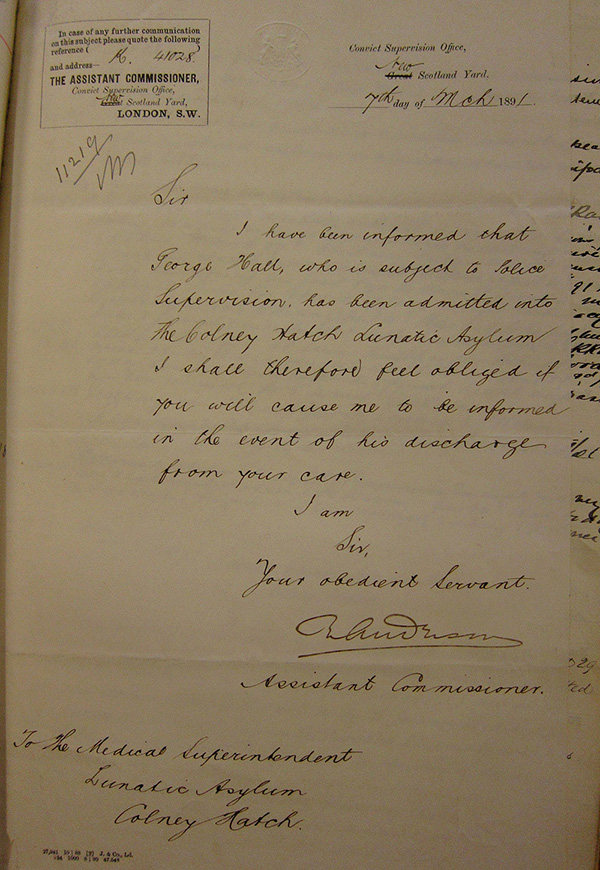 In case of any further communication
on this subject please quote the following
reference (
K. 41028.
and address—
THE ASSISTANT COMMISSIONER,
Convict Supervision Office,
New
Great Scotland Yard,
LONDON, S.W.
11219
Convict Supervision Office,
New
Great Scotland Yard.
7th day of Mch 1891.
Sir
I have been informed that
George Hall, who is subject to Police
Supervision, has been admitted into
The Colney Hatch Lunatic Asylum
I shall therefore feel obliged if
you will cause me to be informed
in the event of his discharge
from your care.
I am
Sir,
Your obedient Servant.
R Anderson
Assistant Commissioner.
To The Medical Superintendent
Lunatic Asylum
Colney Hatch.
J. & Co., Ld.